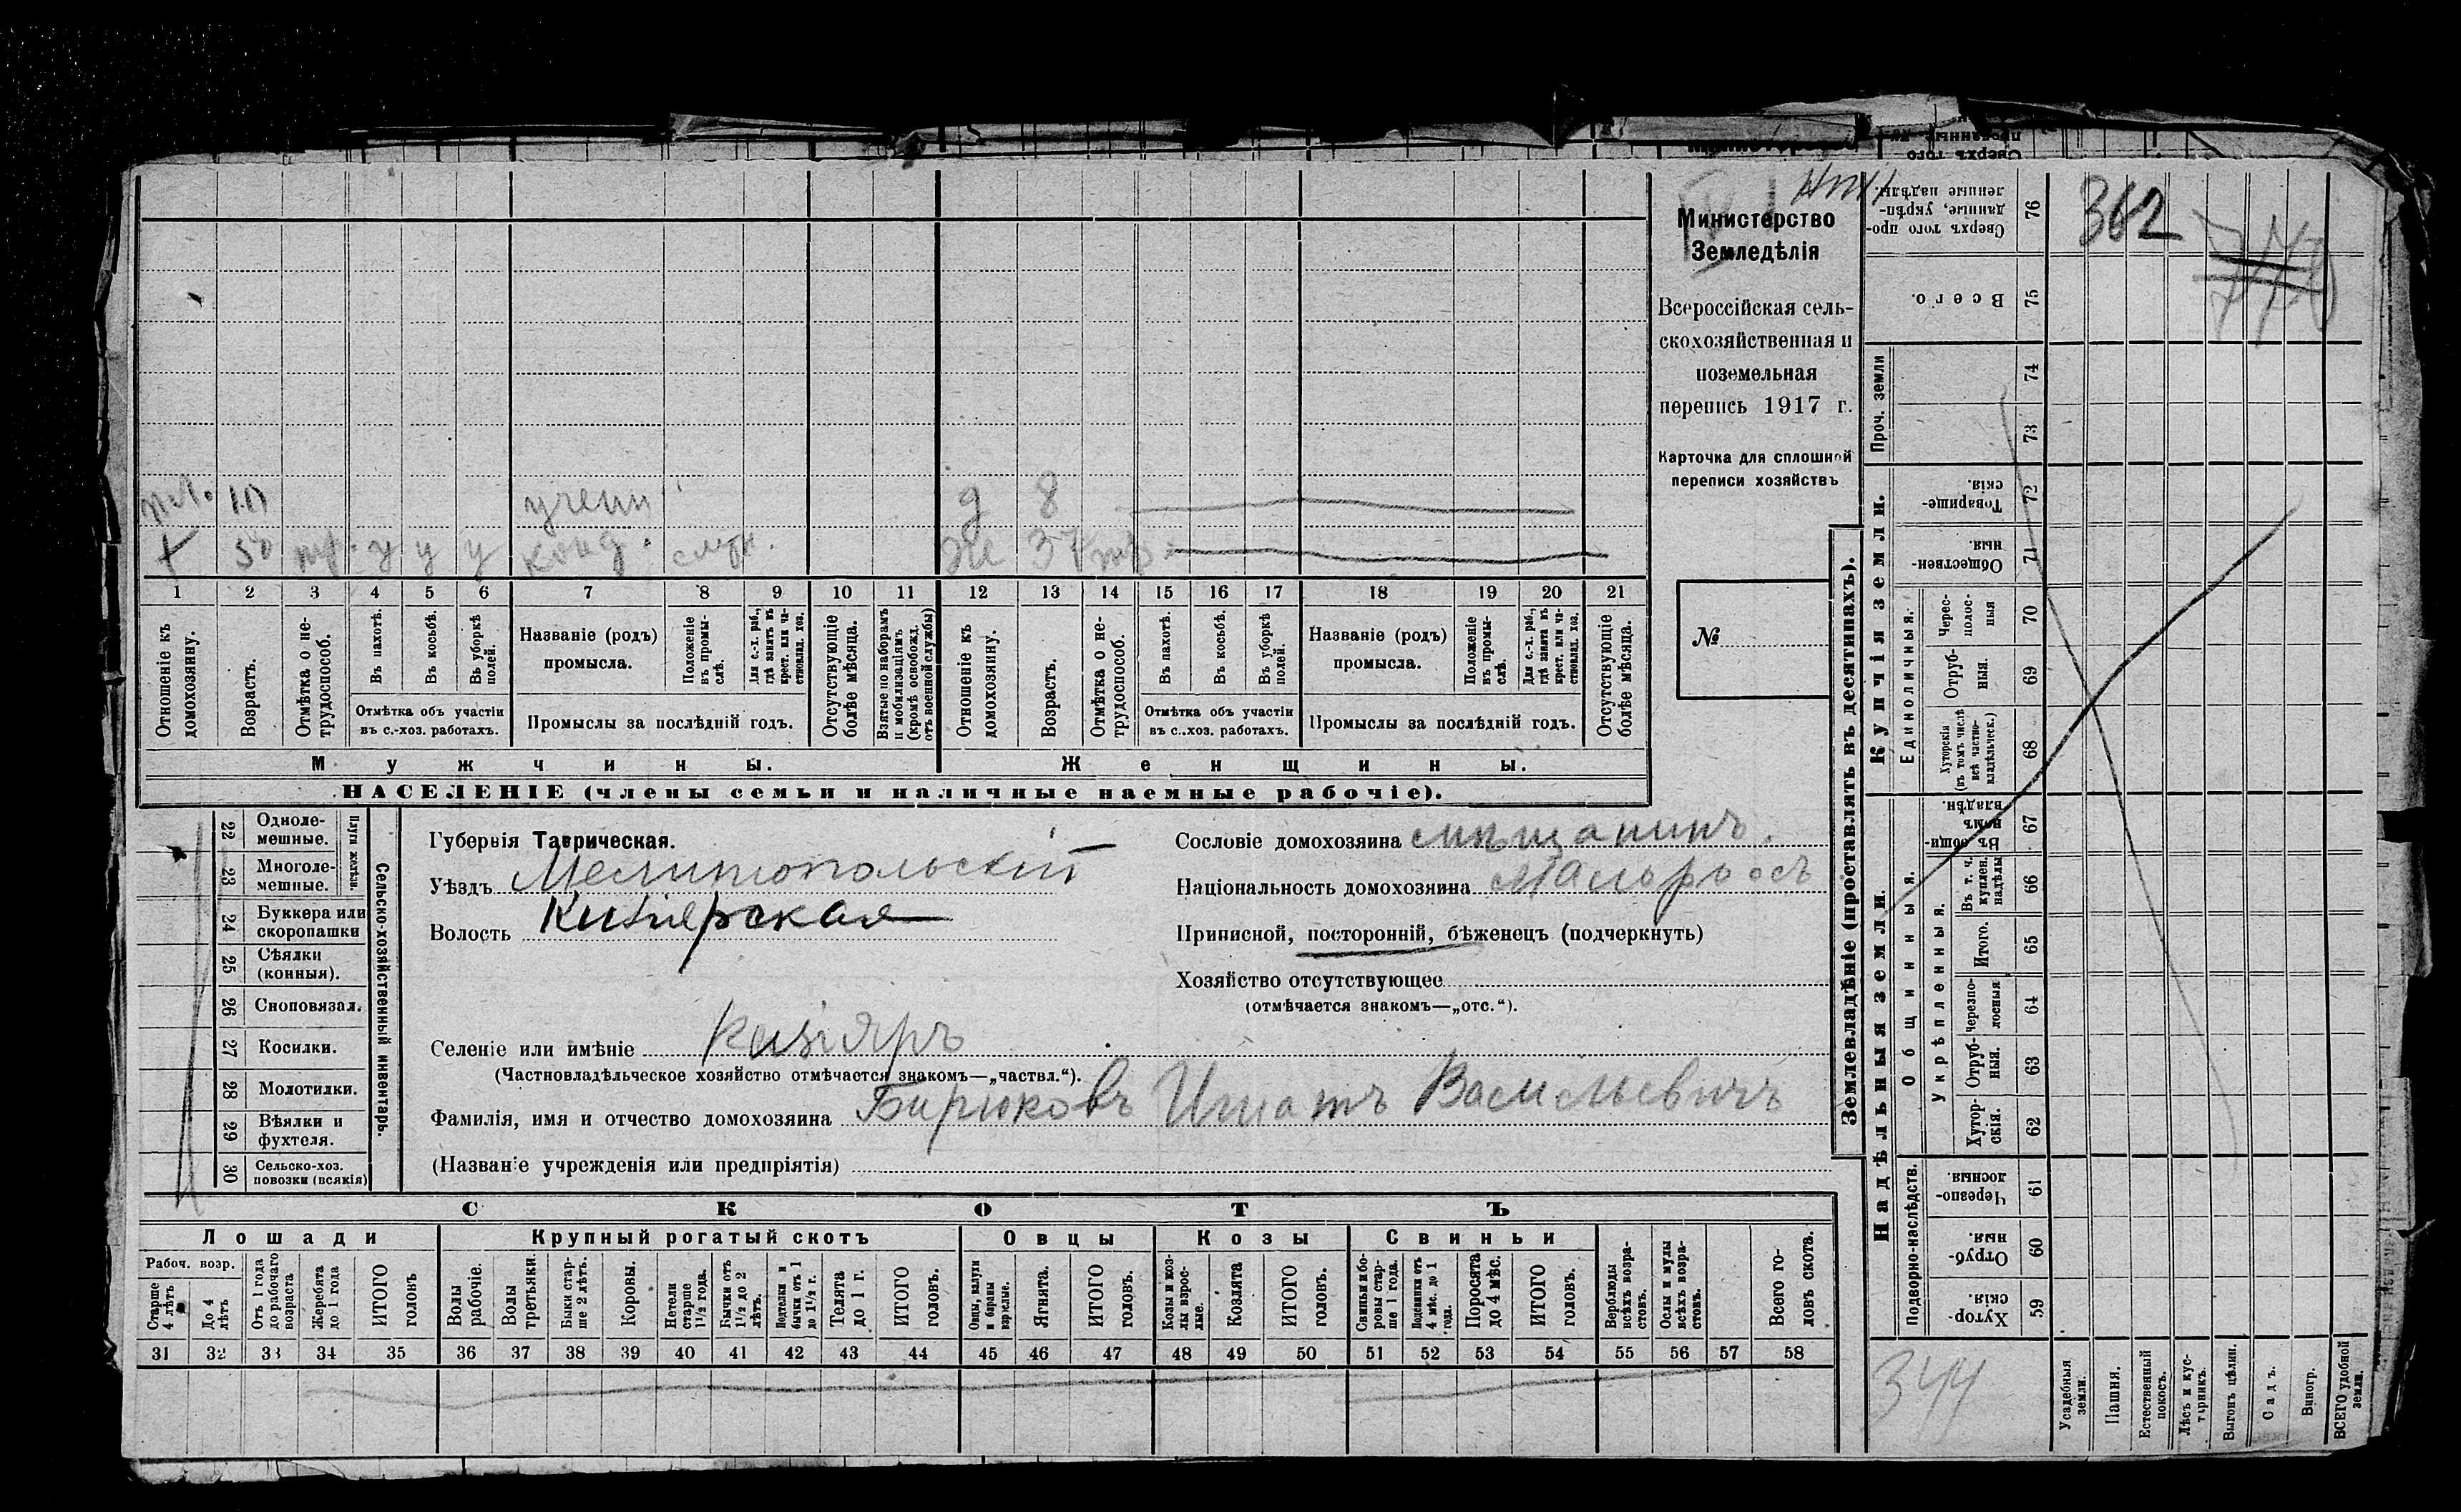 362
Министерство
Земледѣлія
Всероссійская сель-
скохозяйственная и
поземельная
перепись 1917 г.
Карточка для сплошной
переписи хозяйствъ
№
учен
д 8
50 у у у конд. служ.
ж 37
1 2 3 4 5 6 7 8 9 10 11 12 13 14 15 16 17 18 19 20 21
Отношеніе къ домохозяину.
Возрастъ.
Отмѣтка о не-трудоспособ.
Въ пахотѣ.
Въ косьбѣ.
Въ уборкѣ полей.
Отмѣтка объ участіи
въ с.-хоз. работахъ.
Названіе (родъ)
промысла.
Положеніе въ промы-слѣ.
Для с.-х. раб., гдѣ занятъ въ крест. или ча-стновлад. хоз.
Промыслы за послѣдній годъ.
Отсутствующіе болѣе мѣсяца.
Взятые по наборамъ и мобилизаціямъ (кромѣ освобожд. отъ военной службы)
Отношеніе къ домохозяину.
Возрастъ.
Отмѣтка о не-трудоспособ.
Въ пахотѣ.
Въ косьбѣ.
Въ уборкѣ полей.
Отмѣтка объ участіи
въ с..хоз. работахъ.
Названіе (родъ)
промысла.
Положеніе въ промы-слѣ.
Для с.-х. раб., гдѣ занята въ крест. или ча-стновлад. хоз.
Промыслы за послѣдній годъ.
Отсутствующіе болѣе мѣсяца.
Мужчины.
Женщины.
НАСЕЛЕНІЕ (члены семьи и наличные наемные рабочіе).
22 Одноле-мешные.
23 Многоле-мешные.
24 Буккера или скоропашки
25 Сѣялки (конныя).
26 Сноповязал.
27 Косилки.
28 Молотилки.
29 Вѣялки и фухтеля.
30 Сельско-хоз. повозки (всякія)
Сельско-хозяйственный инвентарь.
Губернія Таврическая.
Уѣздъ Мелитопольскій
Волость Кизіярская
Сословіе домохозяина мѣщанинъ.
Національность домохозяина малоросъ
Приписной, посторонній, бѣженецъ (подчеркнуть)
Хозяйство отсутствующее
(отмѣчается знакомъ—„отс.“).
Селеніе или имѣніе Кизіяръ
(Частновладѣльческое хозяйство отмѣчается знакомъ—„частвл.“).
Фамилія, имя и отчество домохозяина Бирюковъ Игнатъ Васильевичъ
(Названіе учрежденія или предпріятія)
СКОТЪ
Лошади Крупный рогатый скотъ Овцы Козы Свиньи
Рабоч. возр.
Старше 4 лѣтъ
До 4 лѣтъ
Отъ 1 года до рабочаго возраста
Жеребята до 1 года
ИТОГО головъ
Волы рабочіе.
Волы третьяки.
Быки стар-ше 2 лѣтъ.
Коровы.
Нетели старше 1½ года.
Бычки отъ 1½ до 2 лѣтъ.
Подтелки и бычки отъ 1 до 1½ г.
Телята до 1 г.
ИТОГО головъ.
Овцы, валухи и бараны взрослые.
Ягнята.
ИТОГО головъ.
Козы и коз-лы взрос-лые.
Козлята
ИТОГО головъ.
Свиньи и бо-ровы стар-ше 1 года.
Подсвинки отъ 4 мѣс. до 1 года.
Поросята до 4 мѣс.
ИТОГО головъ.
Верблюды всѣхъ возра-стовъ.
Ослы и мулы всѣхъ возра-стовъ.
Всего го-ловъ скота.
31 32 33 34 35 36 37 38 39 40 41 42 43 44 45 46 47 48 49 50 51 52 53 54 55 56 57 58
Землевладѣніе (проставлять въ десятинахъ).
Купчія земли.
Надѣльныя земли.
Проч. земли
Единоличныя.
Общинныя.
Укрѣпленныя.
Подворно-наслѣдств.
Сверхъ того про-данные, укрѣп-ленные надѣлы. 76
Всего. 75
74
73
Товарище-скія. 72
Обществен-ныя. 71
Черес-полос-ныя 70
Отруб-ныя. 69
Хуторскія (въ томъ числѣ всѣ частно-владѣльческ.) 68
Въ общи-номъ владѣн. 67
Въ т. ч. куплен. надѣлы 66
Итого. 65
Черезпо-лосныя 64
Отруб-ныя. 63
Хутор-скія. 62
Черезпо-лосныя. 61
Отруб-ныя. 60
Хутор-скія. 59
344
Усадебныя земли.
Пашня.
Естественный покосъ.
Лѣсъ и кус-тарникъ.
Выгонъ цѣлин.
Садъ.
Виногр.
ВСЕГО удобной земли.